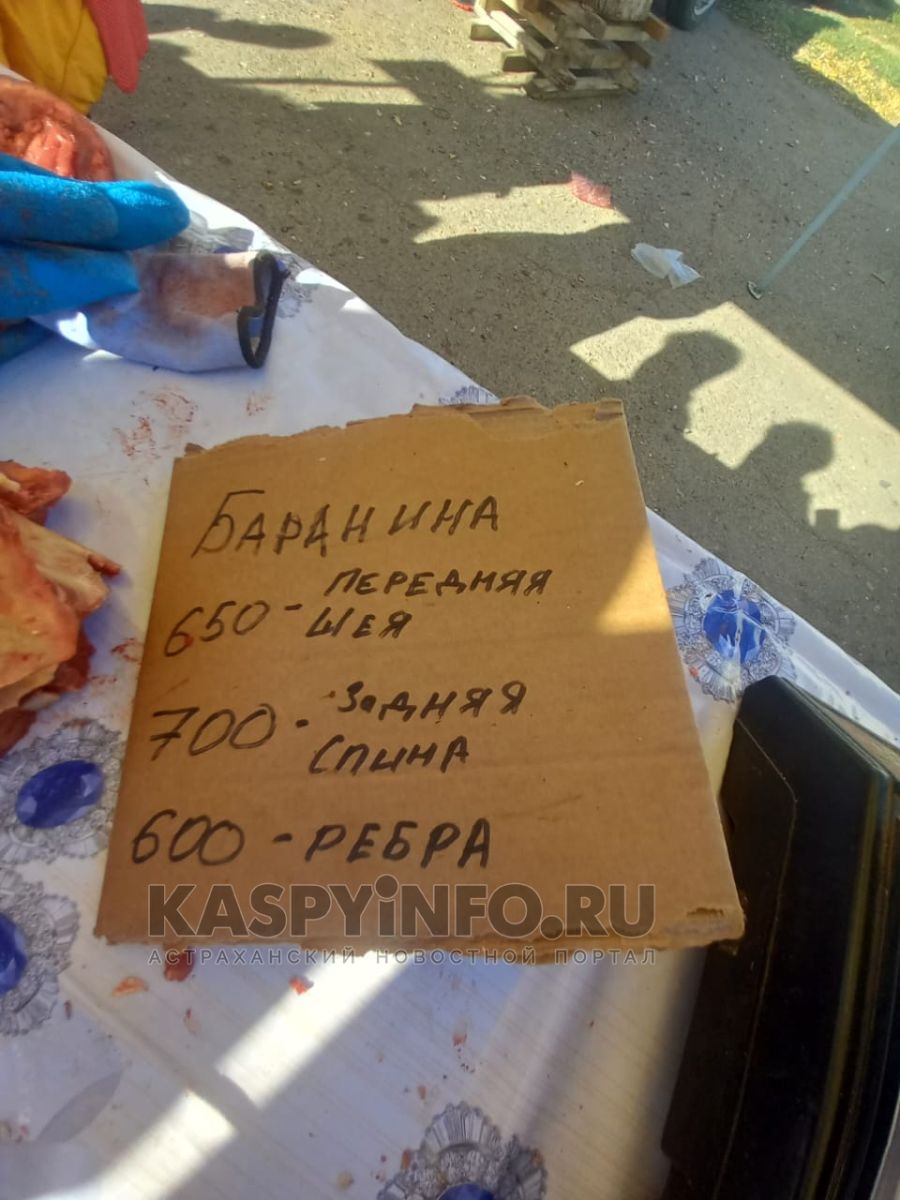 БАРАНИНА
ПЕРЕДНЯЯ
650 - ШЕЯ
700 - ЗаДНЯЯ
СПИНА
600 - РЕБРА
KASPYiNFO.RU
АСТРАХАНСКИЙ НОВОСТНОЙ ПОРТАЛ